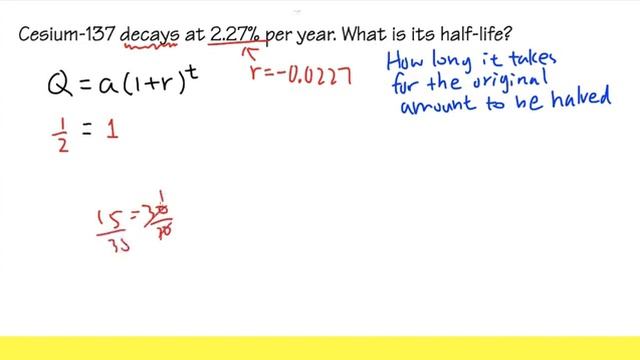 Cesium-137 decays at 2.27% per year. What is its half-life?
Q = a(1+r)^t
r=-0.0227
How long it takes
for the original
amount to be halved
1/2 = 1